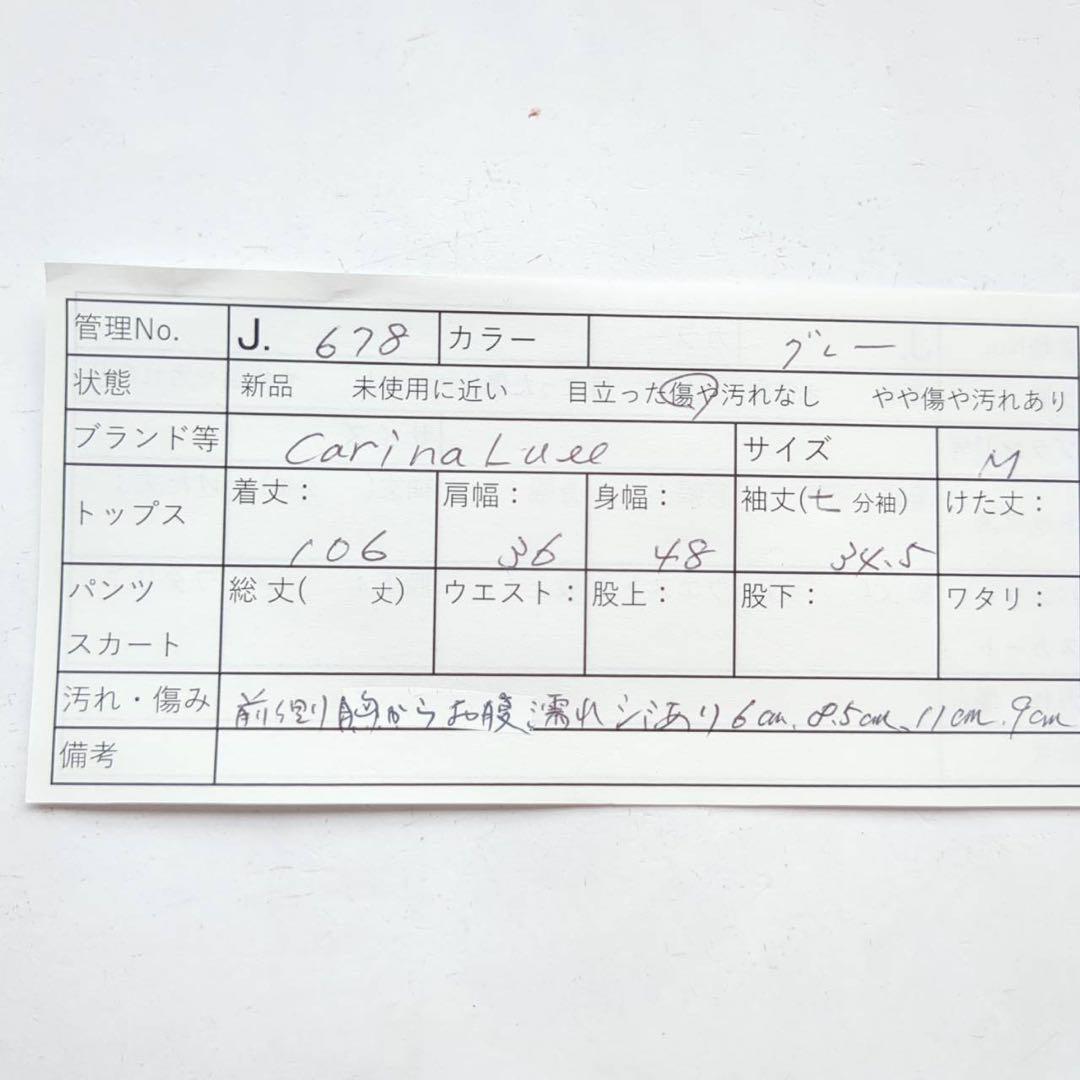 管理No. J. 678 カラー グレー
状態 新品 未使用に近い 目立った傷や汚れなし やや傷や汚れあり
ブランド等 Carina Luee サイズ M
トップス 着丈： 106 肩幅： 36 身幅： 48 袖丈(七分袖) 34.5 けた丈：
パンツ 総丈( 丈) ウエスト： 股上： 股下： ワタリ：
スカート
汚れ・傷み 前側胸からお腹、濡れジミあり 6cm、8.5cm、11cm、9cm
備考